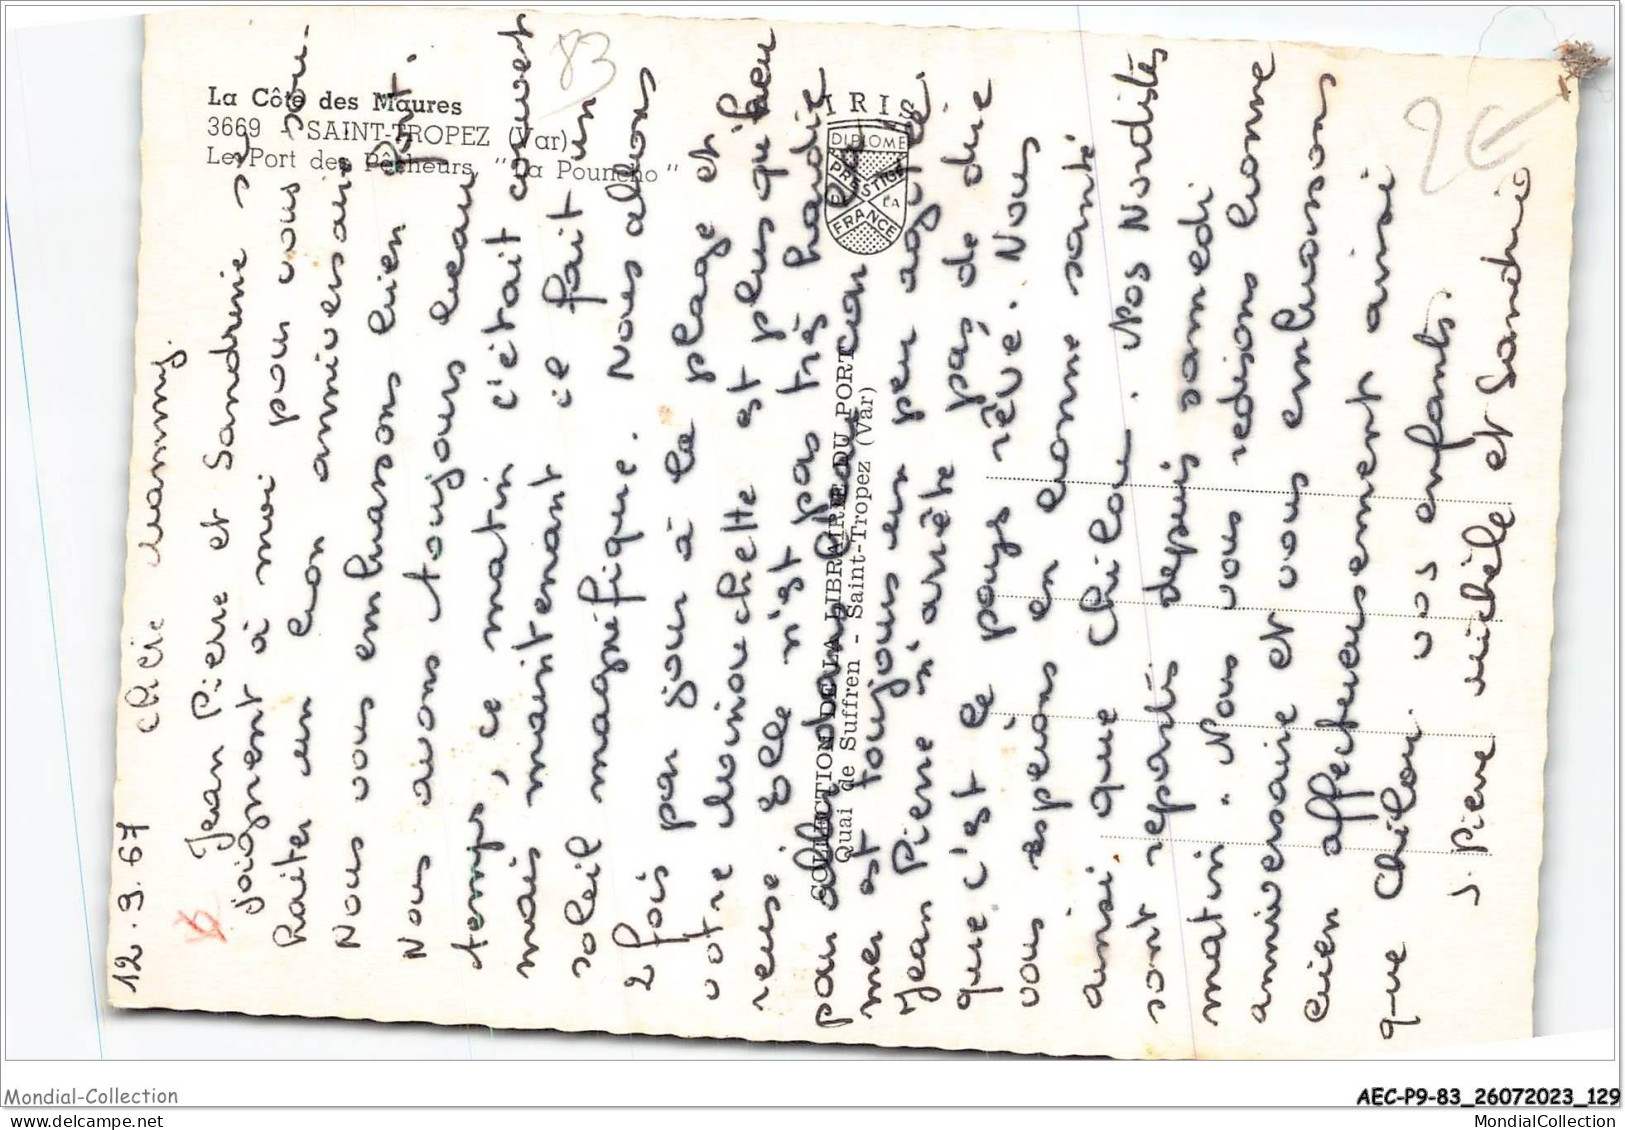 La Côte des Maures
3669 - SAINT-TROPEZ (Var)
Le Port des Pêcheurs, "La Pouncho"
83
2€
IRIS
DIPLOME
PRESTIGE
DE LA
FRANCE
COLLECTION DE LA LIBRAIRIE DU PORT
Quai de Suffren - Saint-Tropez (Var)
12.3.67 Chère Mammy.
Jean Pierre et Sandrine se
joignent à moi pour vous sou-
haiter un bon anniversaire
Nous vous embrassons bien fort.
Nous avons toujours beau
temps, ce matin c'était couvert
mais maintenant il fait un
soleil magnéfique. Nous allons
2 fois par jour à la plage et
votre Minouchette est plus qu'heu
reuse. Elle n'est pas très hardie
par
mer est toujours un peu agitée.
Jean Pierre n'arrête pas de dire
que c'est le pays rêvé. Nous
vous espérons en bonne santé
ainsi que Chilou. Nos Nordistes
sont repartis depuis samedi
matin. Nous vous redisons bonne
anniversaire et vous embrassons
bien affectueusement ainsi
que Chilou. vos enfants.
J. Pierre Michèle et Sandrine
Mondial-Collection
AEC-P9-83_26072023_129
MondialCollection